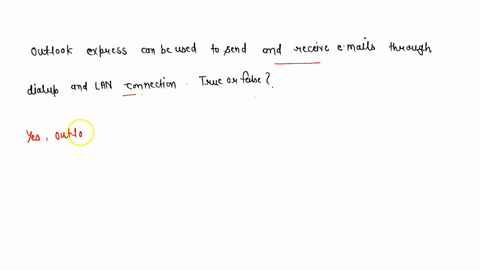 Outlook express can be used to send and receive e-mails through
dialup and LAN connection. True or false?
Yes, outlo